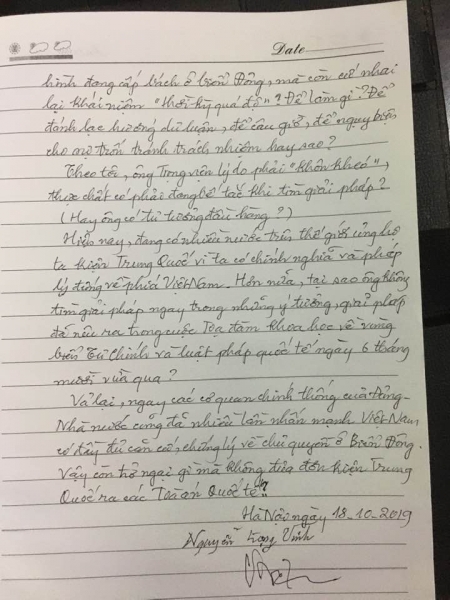 Date
hình đang cấp bách ở biển Đông, mà còn cứ nhai
lại khái niệm "thời kỳ quá độ"? Để làm gì? Để
đánh lạc hướng dư luận, để câu giờ, để ngụy biện
cho sự trốn tránh trách nhiệm hay sao?
Theo tôi, ông Trọng viện lý do phải "khôn khéo",
thực chất có phải đang bế tắc khi tìm giải pháp?
(Hay ông có tư tưởng đầu hàng?)
Hiện nay, đang có nhiều nước trên thế giới ủng hộ
ta kiện Trung Quốc vì ta có chính nghĩa và pháp
lý đứng về phía Việt Nam. Hơn nữa, tại sao ông không
tìm giải pháp ngay trong những ý tưởng, giải pháp
đã nêu ra trong cuộc Tọa đàm khoa học về vùng
biển Tư Chính và luật pháp quốc tế ngày 6 tháng
mười vừa qua?
Vả lại, ngay các cơ quan chính thống của Đảng-
Nhà nước cũng đã nhiều lần nhấn mạnh Việt Nam
có đầy đủ căn cứ, chứng lý về chủ quyền ở Biển Đông.
Vậy còn trở ngại gì mà không đưa đơn kiện Trung
Quốc ra các Tòa án Quốc tế?
Hà Nội ngày 18-10-2019
Nguyễn Trọng Vĩnh